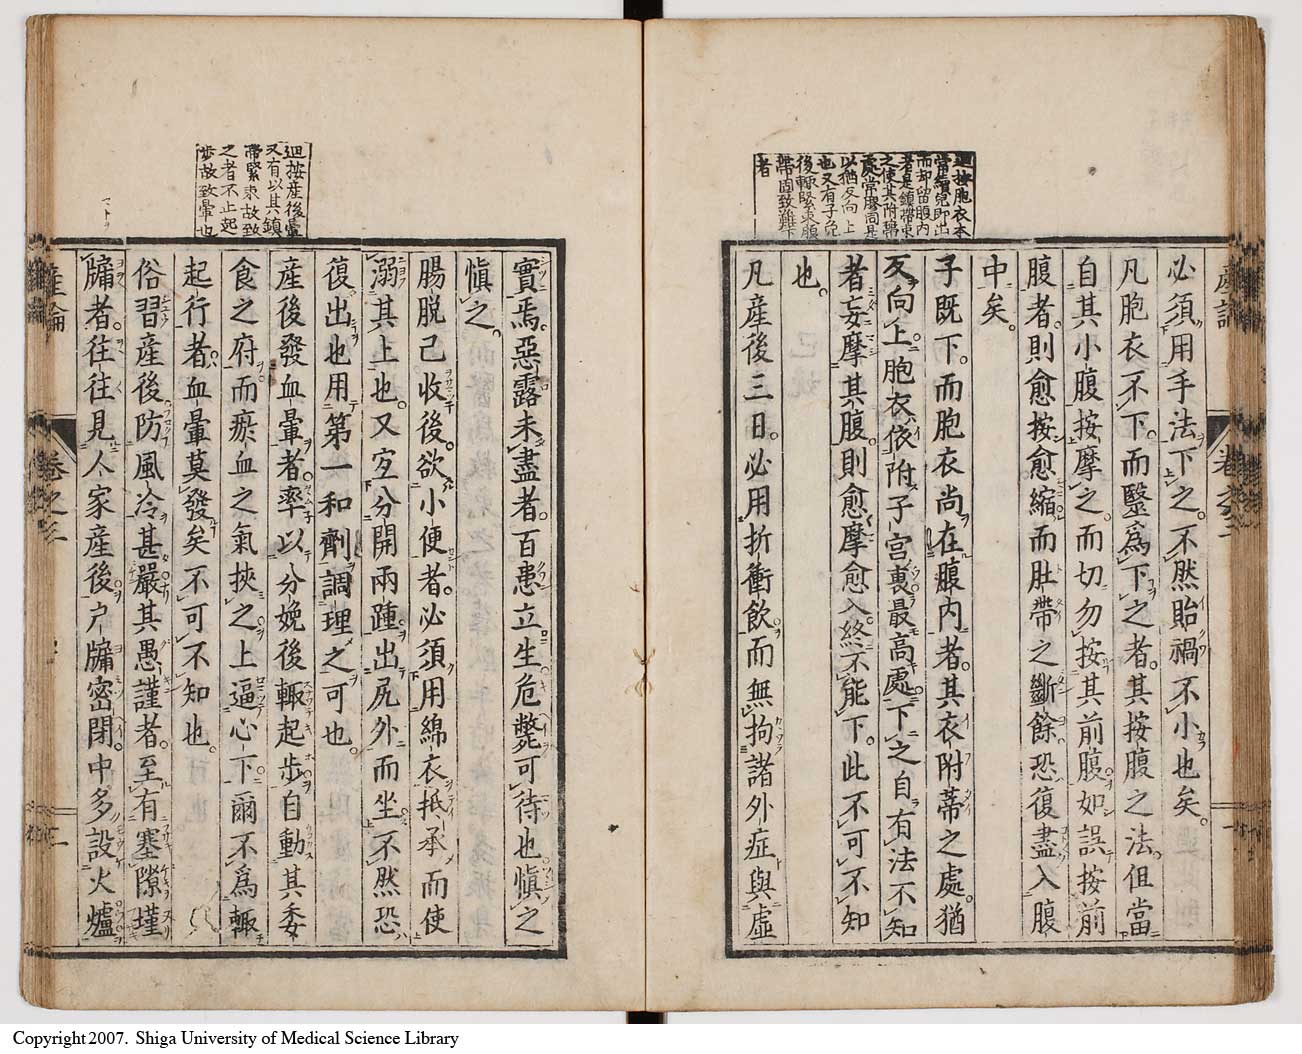 產論
卷之三
迴按胞衣本
常續兒即出
而却留腹内
者是鎮帶束
之使其附蔕
處常膠固是
以猶仄向上
也又有子免
後輙緊束腹
帶固致難下
者
必須用手法下之不然貽禍不小也矣
凡胞衣不下而醫爲下之者其按腹之法但當
自其小腹按摩之而切勿按其前腹如誤按前
腹者則愈按愈縮而肚帶之斷餘恐復盡入腹
中矣
子既下而胞衣尚在腹内者其衣附蒂之處猶
仄向上胞衣依附子宮裏最高處下之自有法不知
者妄摩其腹則愈摩愈入終不能下此不可不知
也
凡產後三日必用折衝飲而無拘諸外症與虛
迴按產後暈
又有以其鎮
帶緊束故致
之者不止起
步故致暈也
實焉惡露未盡者百患立生危斃可待也愼之
愼之
腸脱已收後欲小便者必須用綿衣抵承而使
溺其上也又宜分開兩踵出尻外而坐不然恐
復出也用第一和劑調理之可也
產後發血暈者率以分娩後輙起步自動其委
食之府而瘀血之氣挾之上逼心下爾不爲輙
起行者血暈莫發矣不可不知也
俗習產後防風冷甚嚴其愚謹者至有塞隙墐
牖者往往見人家產後戸牖密閉中多設火爐
產論
卷之三
二
Copyright 2007. Shiga University of Medical Science Library